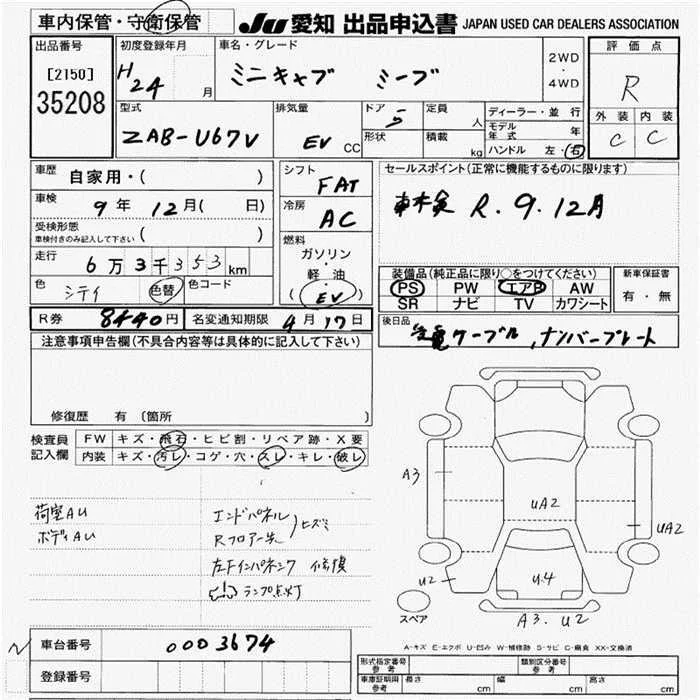 車内保管・守衛保管
JU 愛知 出品申込書 JAPAN USED CAR DEALERS ASSOCIATION
出品番号
[2150]
35208
初度登録年月
H 24 月
車名・グレード
ミニキャブ ミーブ
2WD
・
4WD
評価点
R
外装 内装
C C
型式
ZAB-U67V
排気量
EV CC
ドア
5
定員
人
形状
積載
kg
ディーラー・並行
モデル年式 年
ハンドル 左・右
車歴
自家用・( )
車検
9年 12月( 日)
受検形態
車検付きのみ記入して下さい ( )
走行
6万3千353km
色
シティ
色替
色コード
シフト
FAT
冷房
AC
燃料
ガソリン
・
軽油
(EV)
セールスポイント(正常に機能するものに限ります)
R.9.12月
装備品(純正品に限り○をつけてください)
PS PW エアB AW
SR ナビ TV カワシート
新車保証書
有・無
R券 8440円
名変通知期限 4月17日
後日品
充電ケーブル,ナンバープレート
注意事項申告欄(不具合内容等は具体的に記入して下さい)
修復歴 有(箇所 )
検査員
記入欄
FW キズ・飛石・ヒビ割・リペア跡・X要
内装 キズ・汚レ・コゲ・穴・スレ・キレ・破レ
荷室AU
ボディAU
エンドパネル
Rフロアー先
ヒズミ
左Fインパネック 修損
(!) ランプ点灯
A3
UA2
UA2
U2
U4
A3. U2
スペア
A-キズ E-エクボ U-凹み W-補修跡 S-サビ C-腐食 XX-交換済
N
車台番号
0003674
登録番号
形式指定番号
参考
類別区分番号
参考
車庫証明用
参考
長さ cm
幅 cm
高さ cm